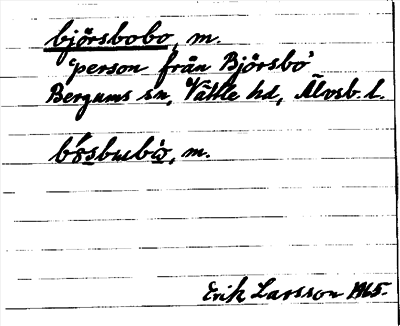 björsbobo, m.
'person från Björsbo'
Bergums sn, Vättle hd, Älvsb. l.
m.
Erik Larsson 1965.